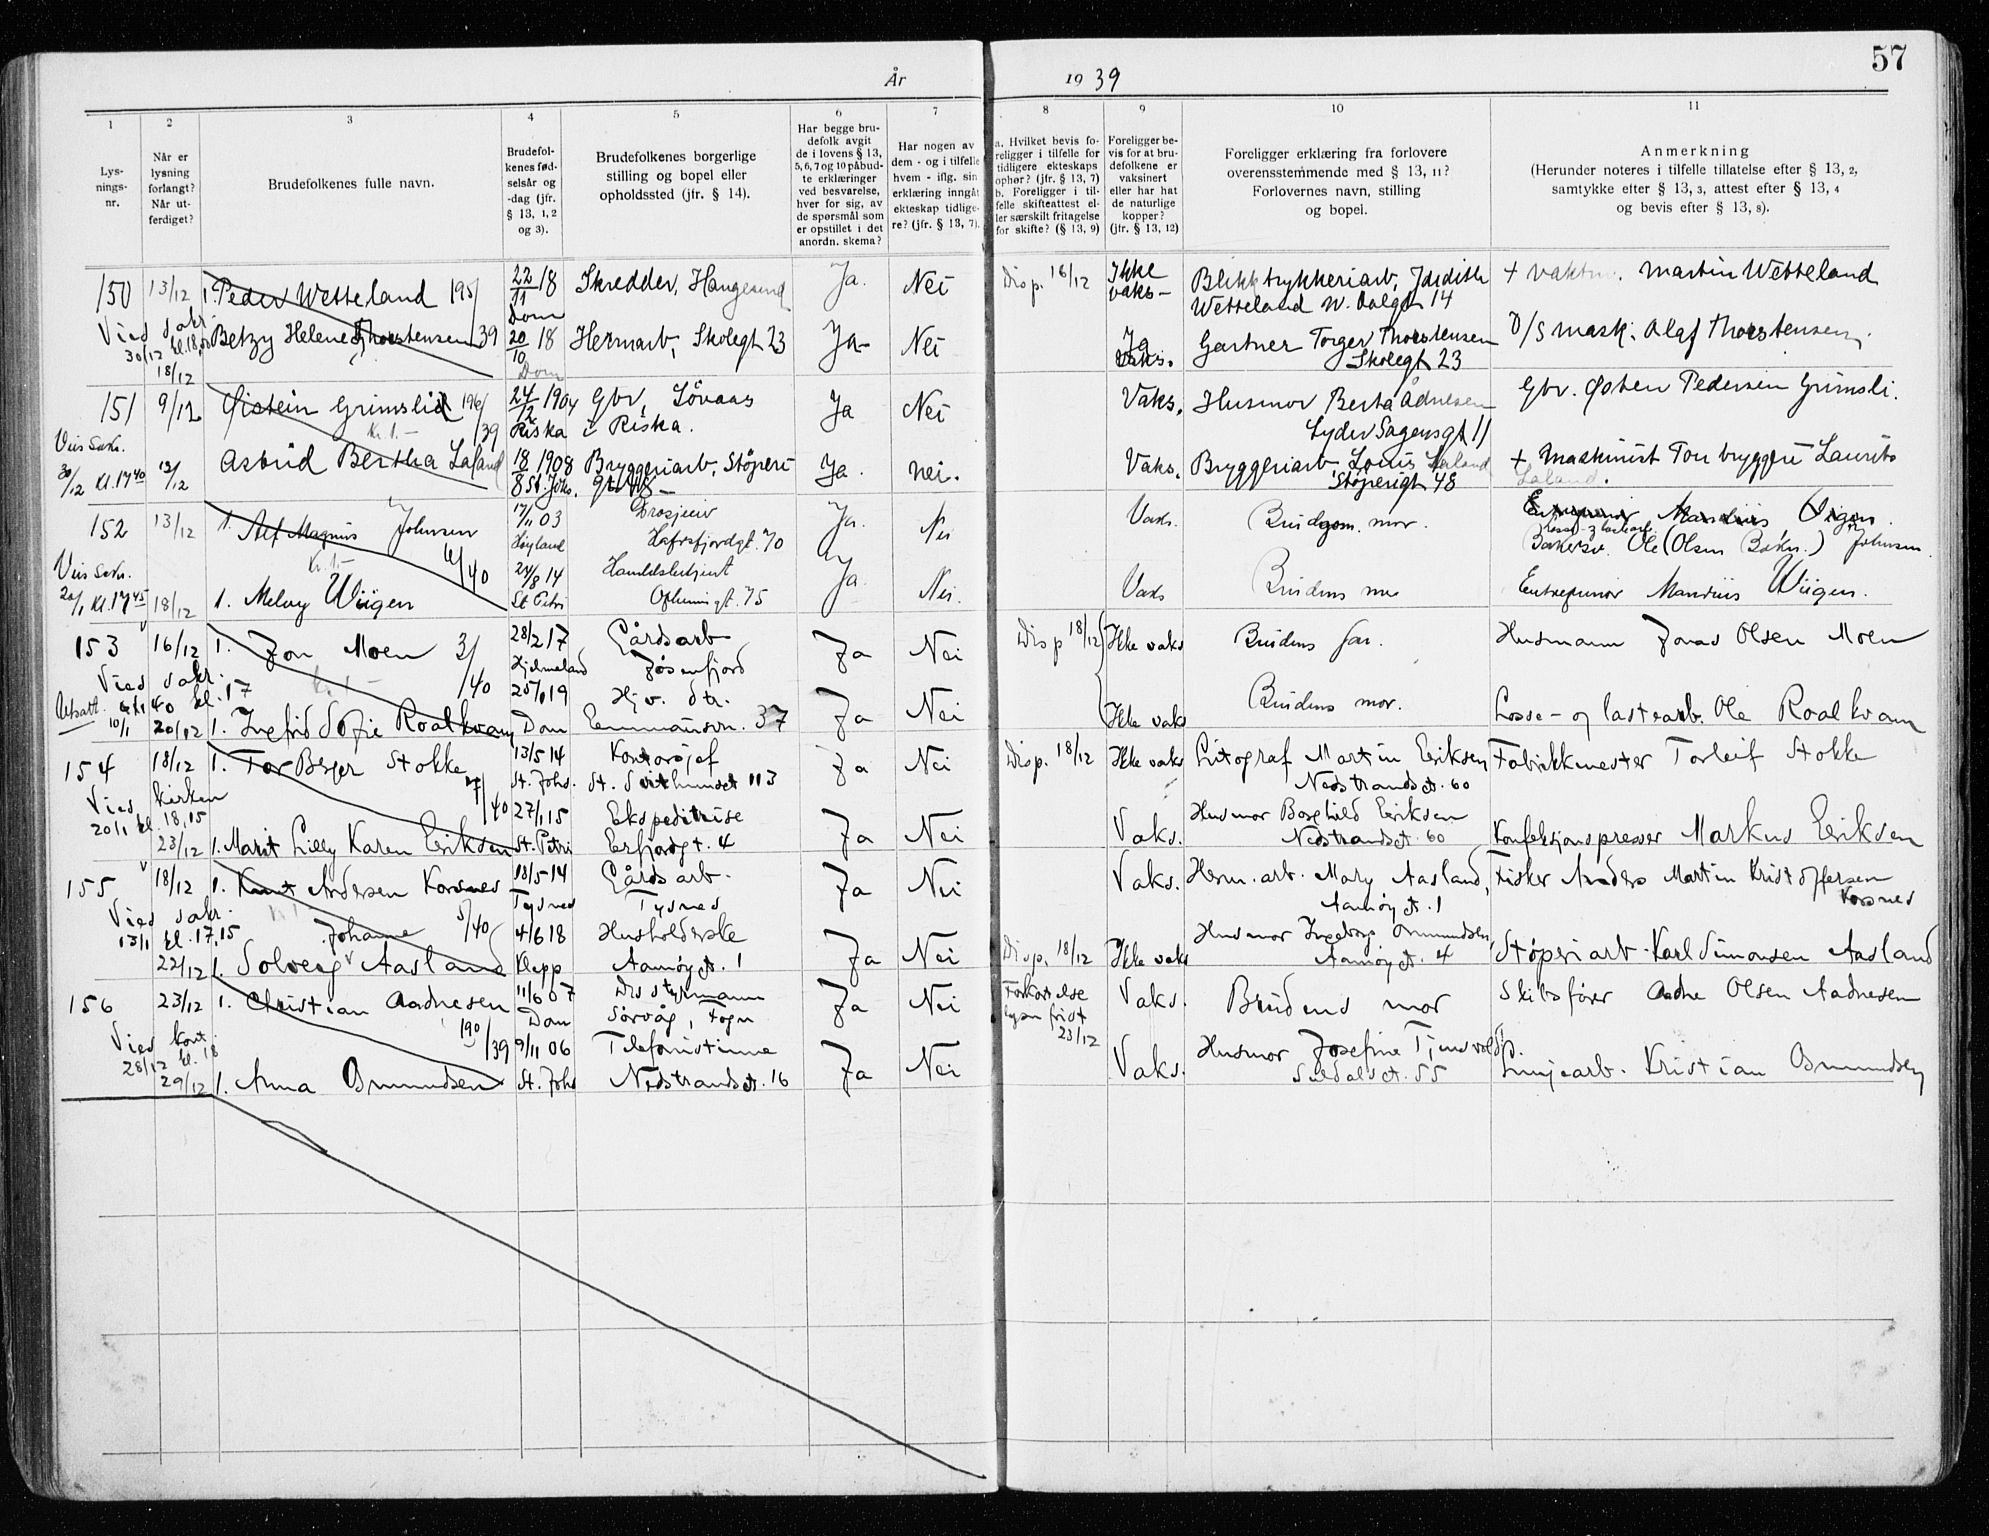 57
År 1939
1 2 3 4 5 6 7 8 9 10 11
Lys-
nings-
nr.
Når er
lysning
forlangt?
Når ut-
ferdiget?
Brudefolkenes fulle navn.
Brudefol-
kenes fød-
selsår og
-dag (jfr.
§ 13, 1, 2
og 3).
Brudefolkenes borgerlige
stilling og bopel eller
opholdssted (jfr. § 14).
Har begge bru-
defolk avgit
de i lovens § 13,
5, 6, 7 og 10 påbud-
te erklæringer
ved besvarelse,
hver for sig, av
de spørsmål som
er opstillet i det
anordn. skema?
Har nogen av
dem - og i tilfelle
hvem - iflg. sin
erklæring inngått
ekteskap tidlige-
re? (jfr. § 13, 7).
a. Hvilket bevis fo-
religger i tilfelle for
tidligere ekteskaps
ophør? (jfr. § 13, 7)
b. Foreligger i til-
felle skifteattest el-
ler særskilt fritagelse
for skifte? (§ 13, 9)
Foreligger be-
vis for at bru-
defolkene er
vaksinert
eller har hat
de naturlige
kopper?
(jfr. § 13, 12)
Foreligger erklæring fra forlovere
overensstemmende med § 13, 11?
Forlovernes navn, stilling
og bopel.
Anmerkning
(Herunder noteres i tilfelle tillatelse efter § 13, 2,
samtykke efter § 13, 3, attest efter § 13, 4
og bevis efter § 13, 8).
150 13/12 1. Peder Wetteland 195/39 22/11 18 Dom Skredder, Haugesund Ja. Nei Disp. 16/12 Ikke vaks- Blikktrykkeriarb, Judith Wetteland W. Dalsgt 14 + Martin Wetteland
Vied sakr. 30/12 kl. 18 18/12 Betzy Helene Thorstensen 20/10 18 Dom Hermarb, Skolegt 23 Ja- Nei Ja Vaks. Gartner Torger Thorstensen Skolegt 23 D/S mask. Olaf Thorstensen.
151 9/12 Øistein Grimslid 196/39 Kr. 1.- 24/12 1904 Riska Gbr, Lövaas i Riska. Ja Nei Vaks. Husmor Berta Ådnesen Lyder Sagensgt 11 Gbr. Østen Pedersen Grimsli.
Viis Sakr. 30/12 Kl. 17 40 12/12 Astrid Bertha Laland 18/8 1908 St. Joh. Bryggeriarb, Støperigt 48- Ja. nei. Vaks. Bryggeriarb, Louis Laland Støperigt 48 + Maskinist Tou bryggeri Laurits Laland.
152 13/12 1. Alf Magnus Johnsen 4/40 Kr. 1.- 17/11 03 Høyland Drosjeeier Hafrsfjordgt. 70 Ja. Nei Vaks. Brudgom. mor. Entreprenør Mandius Wigen. Losse- & lastearb. Bakersv. Ole (Olsen Bakn.) Johnsen.
Viis Sakr. 20/1 Kl. 17 45 18/12 1. Melvy Wiigen 24/8 14 St Petri Handelsbetjent 75 Ja. Nei. Vaks Brudens mor Entreprenør Mandius Wiigen.
153 16/12 1. Jon Moen 3/40 Kr. 1- 28/2 17 Hjelmeland Gårdsarb Jøsenfjord Ja Nei Disp 18/12 Ikke vaks Brudens far. Husmann Jonas Olsen Moen
Vied sakr. 40 kl. 17 Utsatt. 10/1 20/12 1. Ingrid Sofie Roalkvam 25/1 19 Dom Hj. v. dtr. Emmausvn. 37 Ja Nei Ikke vaks Brudens mor. Losse- og lastearb. Ole Roalkvam
154 18/12 1. Tor Berger Stokke 7/40 13/5 14 St. Johs. Kontorsjef St. Svithunsgt 113 Ja Nei Disp. 18/12 Ikke vaks Litograf Martin Eriksen Nedstrandsgt. 60 Fabrikkmester Torleif Stokke
Vied kirken 20/1 kl. 18,15 23/12 1. Marit Lilly Karen Eriksen 27/1 15 St. Petri Ekspeditrise Erfjordgt. 4 Ja Nei Vaks. Husmor Borghild Eriksen Nedstrandsgt. 60 Konfeksjonspresser Markus Eriksen
155 18/12 1. Knut Andersen Korsnes 5/40 18/5 14 Tysnes Gårdsarb. Tysnes Ja Nei Vaks. Herm. arb. Mary Aasland, Aamøygt. 1 Fisker Anders Martin Kristoffersen Korsnes
Vied sakr. 13/1 kl. 17,15 22/12 1. Solveig Johanne Aasland 4/6 18 Klepp Husholderske Aamøygt. 1 Ja Nei Disp. 18/12 Ikke vaks Husmor Ingeborg Osmundsen, Aamøygt. 4 Støperiarb. Karl Simonsen Aasland
156 23/12 1. Christian Aadnesen 190/39 11/6 07 Dom D/s styrmann Sørvåg, Fogn Ja Nei Forkortelse lysn frist 23/12 Vaks. Brudens mor Skibsfører Adne Olsen Aadnesen
Vied kont. 28/12 kl. 18 29/12 1. Anna Osmundsen 9/11 06 St. Johs Telefonistinne Nedstrandsgt. 16 Ja Nei Vaks. Husmor Josefine Suldalsgt. 55 Linjearb. Kristian Osmundsen